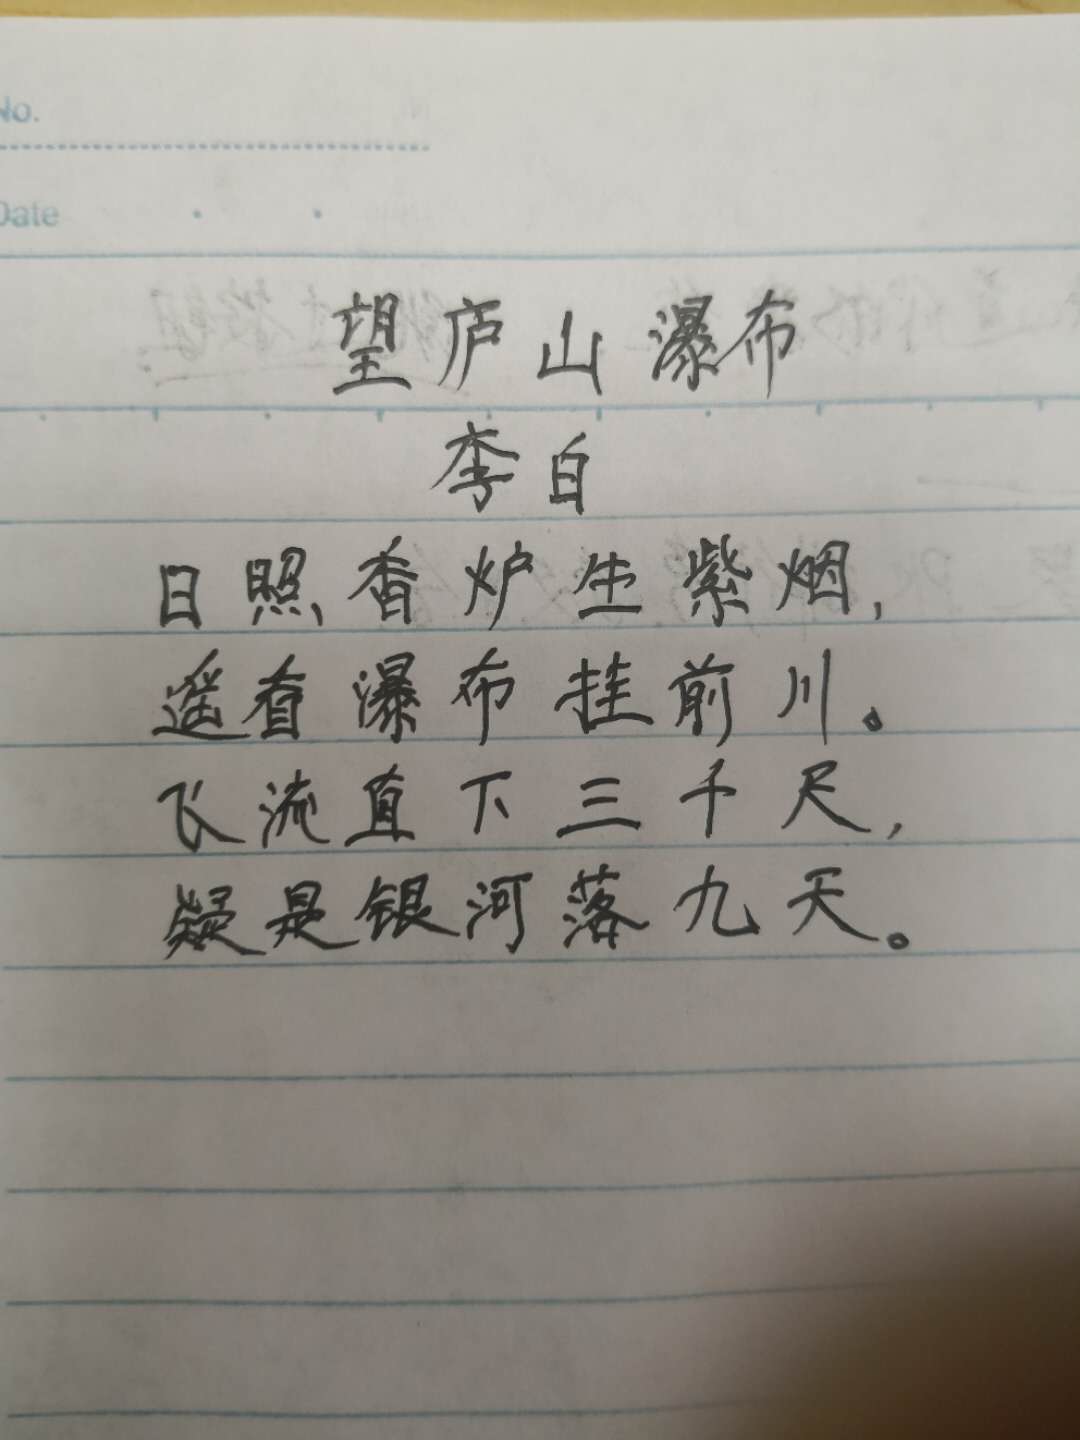 No.
Date
望庐山瀑布
李白
日照香炉生紫烟,
遥看瀑布挂前川。
飞流直下三千尺,
疑是银河落九天。